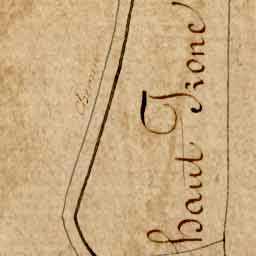 haut Tronc
Chemin